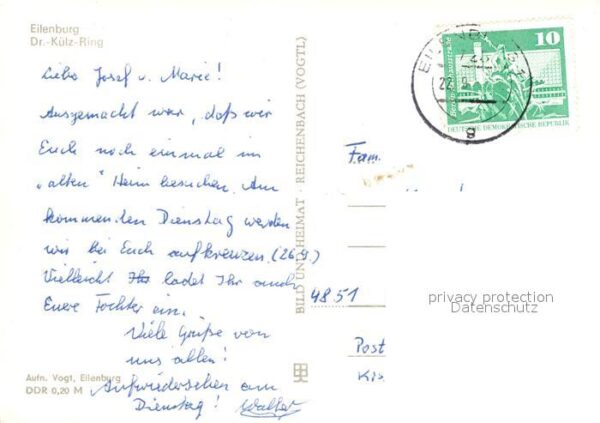 Eilenburg
Dr.-Külz-Ring
Liebe Josef u. Marie!
Ausgemacht war, daß wir
Euch noch einmal im
„alten" Heim besuchen. Am
kommenden Dienstag werden
wir bei Euch aufkreuzen. (26.9.)
Vielleicht ladet Ihr auch
Eure Tochter ein.
Viele Grüße von
uns allen!
Aufwiedersehen am
Dienstag! Walter
Aufn. Vogt, Eilenburg
DDR 0,20 M
BILD UND HEIMAT · REICHENBACH (VOGTL)
10
DEUTSCHE DEMOKRATISCHE REPUBLIK
Fam.
4851
privacy protection
Datenschutz
Post
Krs.